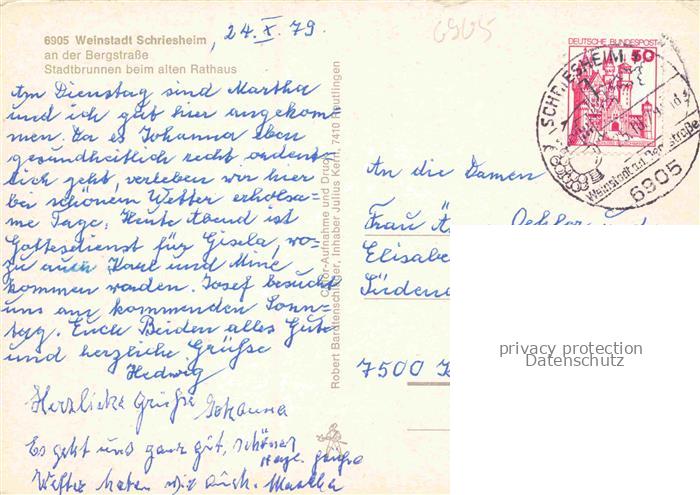 6905 Weinstadt Schriesheim
an der Bergstraße
Stadtbrunnen beim alten Rathaus
24. X. 79.
6905
Am Dienstag sind Martha
und ich gut hier angekom
men. Da es Johanna eben
gesundheitlich recht ordent-
lich geht, verleben wir hier
bei schönem Wetter erholsa-
me Tage. Heute Abend ist
Gottesdienst für Gisela, wo-
zu auch Karl und Mine
kommen werden. Josef besucht
uns am kommenden Sonn-
tag. Euch Beiden alles Gute
und herzliche Grüße
Hedwig
Herzliche Grüße Johanna
Es geht uns ganz gut, schönes
Wetter haben wir auch. Martha
Color-Aufnahme und Druck:
Robert Bardtenschlager, Inhaber Julius Kern, 7410 Reutlingen
DEUTSCHE BUNDESPOST
50
SCHRIESHEIM
Weinstadt a.d. Bergstraße
6905
An die Damen
Frau
Elisabe
Südend
7500
privacy protection
Datenschutz